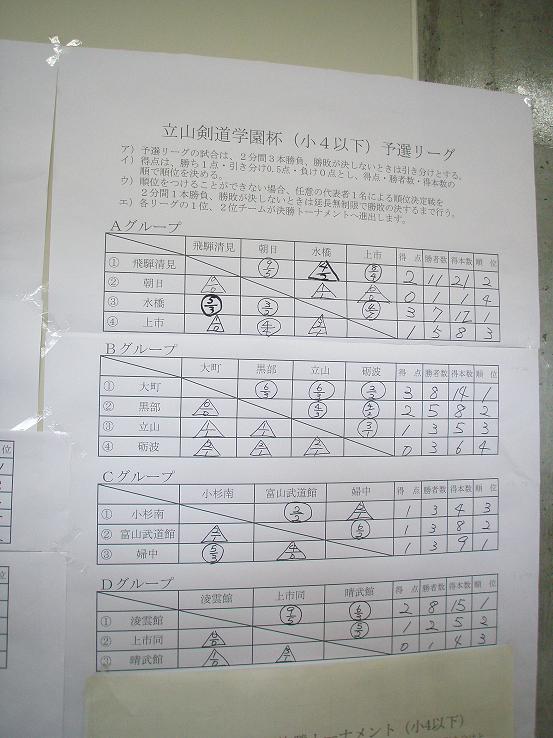 立山剣道学園杯（小４以下）予選リーグ
ア）予選リーグの試合は、２分間３本勝負、勝敗が決しないときは引き分けとする。
イ）得点は、勝ち１点・引き分け0.5点・負け０点とし、得点・勝者数・得本数の
順で順位を決める。
ウ）順位をつけることができない場合、任意の代表者１名による順位決定戦を
２分間１本勝負、勝敗が決しないときは延長無制限で勝敗の決するまで行う。
エ）各リーグの１位、２位チームが決勝トーナメントへ進出します。
Ａグループ
飛騨清見 朝日 水橋 上市 得点 勝者数 得本数 順位
① 飛騨清見 9/5 4/3 8/4 2 11 21 2
② 朝日 0 1 1 4
③ 水橋 5/3 3/2 4/2 3 7 1
④ 上市 1 5 8 3
Ｂグループ
大町 黒部 立山 砺波 得点 勝者数 得本数 順位
① 大町 6/3 6/3 3 8 14 1
② 黒部 0/0 4/3 4/2 2 5 8 2
③ 立山 4/1 4/1 3/1 1 3 5 3
④ 砺波 2/1 0 3 6 4
Ｃグループ
小杉南 富山武道館 婦中 得点 勝者数 得本数 順位
① 小杉南 2/2 2/1 1 3 4 3
② 富山武道館 2/1 6/2 1 3 8 2
③ 婦中 5/3 4/0 1 3 9 1
Ｄグループ
淩雲館 上市同 晴武館 得点 勝者数 得本数 順位
① 淩雲館 9/5 6/3 2 8 15 1
② 上市同 0/0 5/2 1 2 5 2
③ 晴武館 1/0 3/1 0 1 4 3
トーナメント（小4以下）